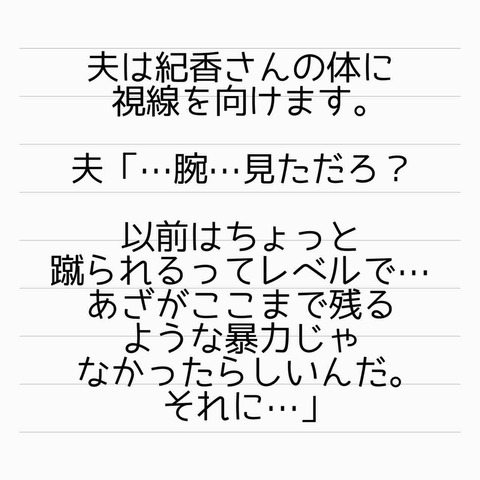 夫は紀香さんの体に
視線を向けます。
夫「…腕…見ただろ？
以前はちょっと
蹴られるってレベルで…
あざがここまで残る
ような暴力じゃ
なかったらしいんだ。
それに…」